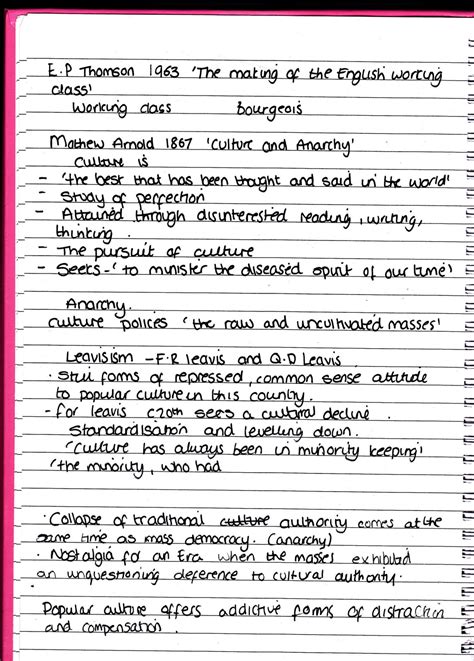 E.P Thomson 1963 'The making of the English working
class'
Working class Bourgeois
Mathew Arnold 1867 'Culture and Anarchy'
Culture is
- 'the best that has been thought and said in the world'
- Study of perfection
- Attained through disinterested reading, writing,
thinking.
- The pursuit of culture
- Seeks - 'to minister the diseased spirit of our time'
Anarchy.
culture polices 'the raw and uncultivated masses'
Leavisism - F.R leavis and Q.D Leavis.
· Still forms of repressed, common sense attitude
to popular culture in this country.
- for leavis c20th sees a cultural decline.
Standardisation and levelling down.
'Culture has always been in minority keeping'
'the minority, who had
· Collapse of traditional culture authority comes at the
same time as mass democracy. (anarchy)
· Nostalgia for an Era when the masses exhibited
an unquestioning deference to cultural authority.
Popular culture offers addictive forms of distraction
and compensation.